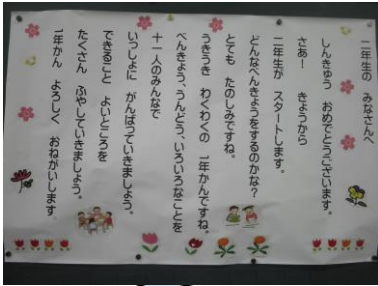 二年生の みなさんへ
しんきゅう おめでとうございます。
さあ！ きょうから
二年生が スタートします。
どんなべんきょうをするのかな？
とても たのしみですね。
うきうき わくわくの 一年かんですね。
べんきょう、うんどう、いろいろなことを
十一人のみんなで
いっしょに がんばっていきましょう。
できること よいところを
たくさん ふやしていきましょう。
一年かん よろしく おねがいします。